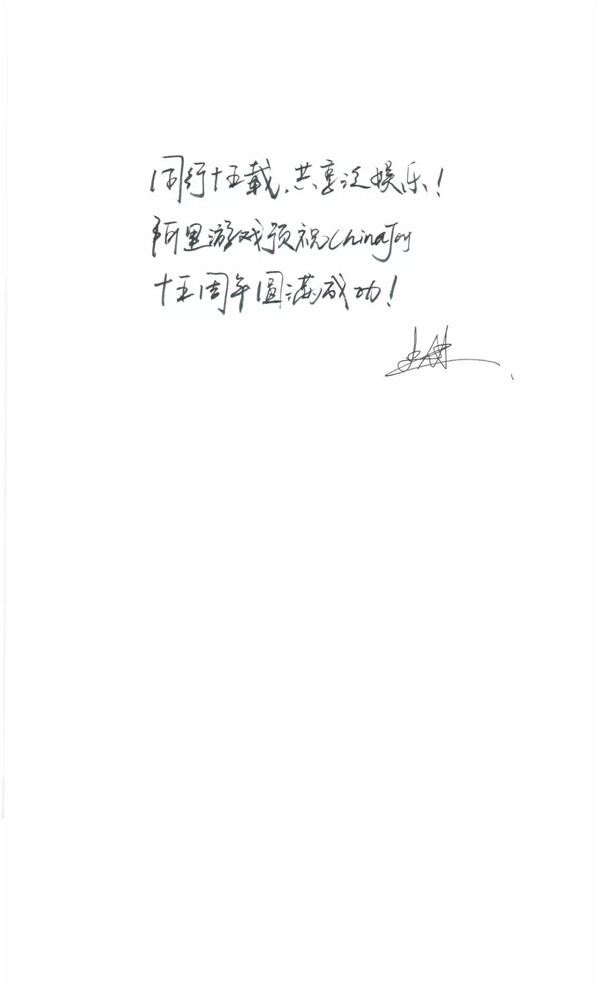 同行十五载，共享泛娱乐！
阿里游戏预祝ChinaJoy
十五周年圆满成功！